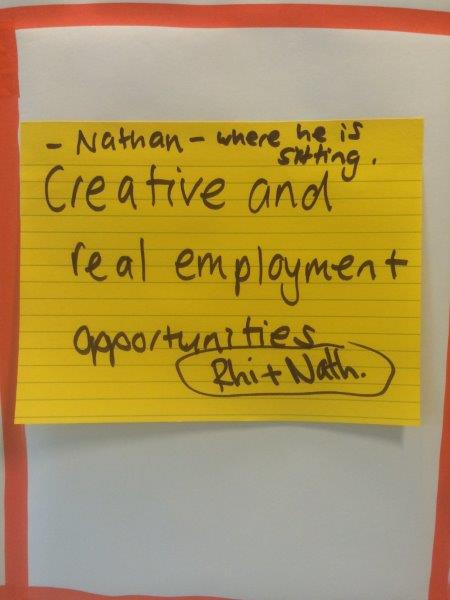 - Nathan - where he is
sitting.
Creative and
real employment
opportunities
Rhi + Nath.